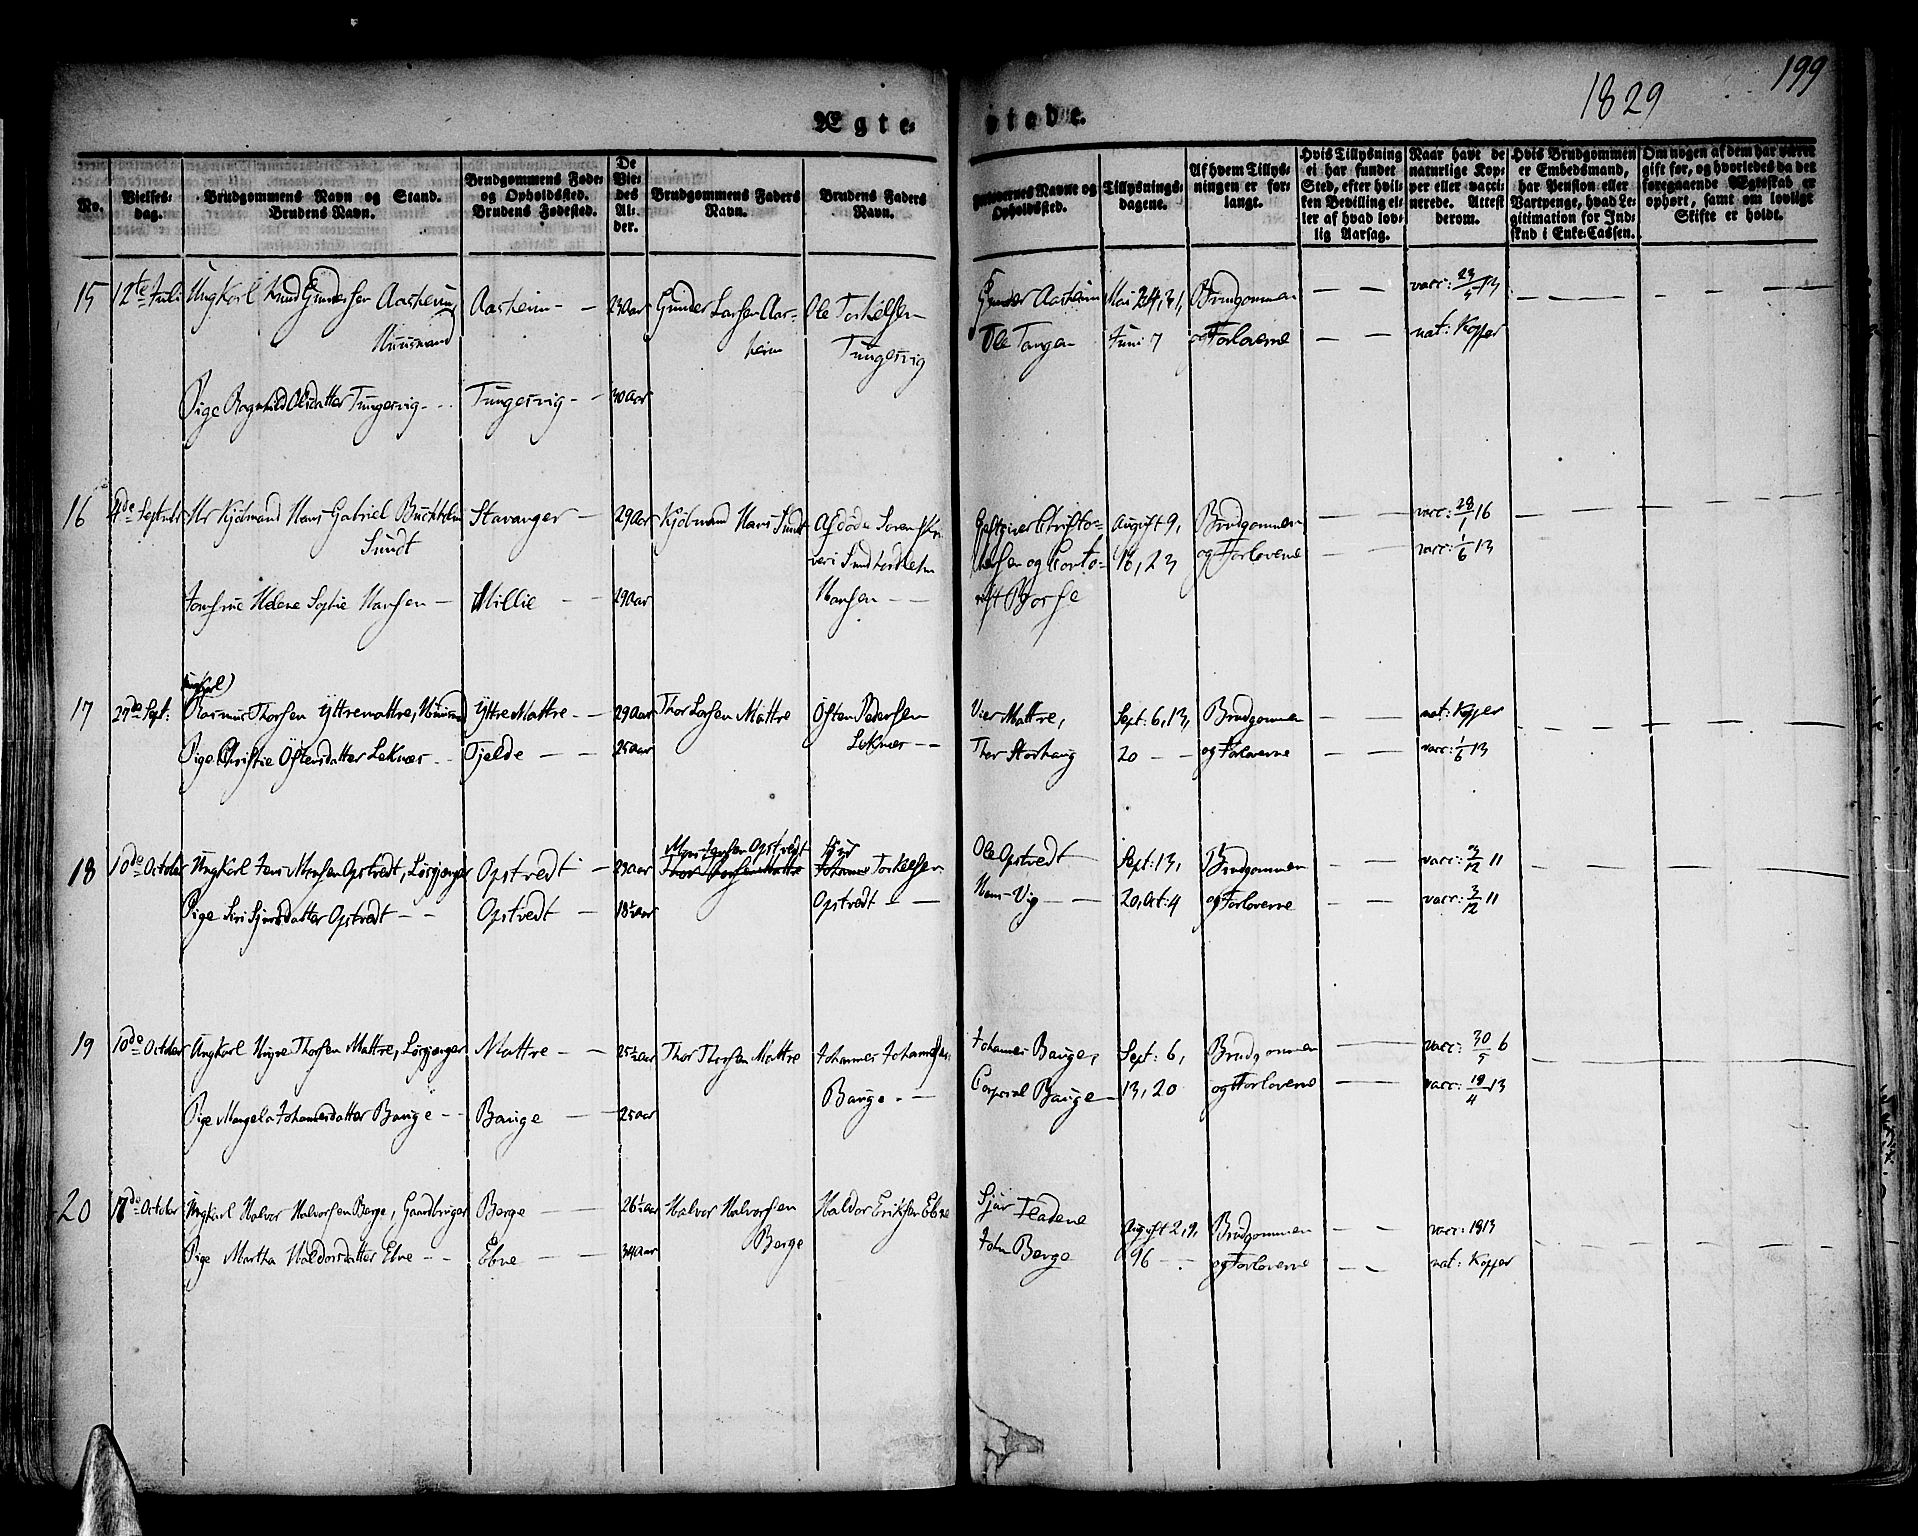 199
1829
Ægte
stede.
No.
Vielses-
dag.
Brudgommens Navn og Stand.
Brudens Navn.
Brudgommens Føde-
og Opholdssted.
Brudens Fødested.
De
Vie-
des
Al-
der.
Brudgommens Faders
Navn.
Brudens Faders
Navn.
Navne og
Opholdssted.
Tillysnings-
dagene.
Af hvem Tillys-
ningen er for-
langt.
Hvis Tillysning
ei har fundet
Sted, efter hvil-
ken Bevilling el-
ler af hvad lov-
lig Aarsag.
Naar havt de
naturlige Kop-
per eller vacci-
nerede. Attest
derom.
Hvis Brudgommen
er Embedsmand,
har Pension eller
Vartpenge, hvad Le-
gitimation for Ind-
skud i Enke-Cassen.
Om nogen af dem har været
gift før, og hvorledes da det
foregaaende Ægteskab er
ophørt, samt om lovligt
Skifte er holdt.
15 12te Juli Ungkarl Knud Gundersen Aasheim, Aasheim 23 Aar Gunder Larsen Aas- Ole Torkelsen Gunder Aasheim Mai 24, 31, Brudgommen vacc: 23/5 13
Huusmand heim Tungesvig Ole Tangen Juni 7 og Forloverne nat: Kopper
Pige Ragnhild Olsdatter Tungesvig Tungesvig 30 Aar
16 4de Septebr Hr Kjøbmand Hans Gabriel Buchholm Stavanger 29 Aar Kjøbmand Hans Sundt Afdøde Soren August 9, Brudgommen vacc: 28/1 16
Sundt 16, 23 og Forloverne vacc: 1/6 13
Jomfrue Helene Sophie Hansen Millie 29 Aar Hansen
17 27de Sept: Ungkarl)
Rasmus Thorsen Yttremattre, Huusmd Yttre Mattre 29 Aar Thor Larsen Mattre Østen Pedersen Vier Mattre, Sept: 6, 13, Brudgommen nat: Kopper
Pige Christie Østensdatter Leknæs Tjelde 25 aar Leknæs Thor Storhaug 20 og Forloverne vacc: 1/6 13
18 10de October Ungkarl Jens Monsen Opstvedt, Løsgjænger Opstvedt 23 aar Mons Jensen Opstvedt Torkelsen Ole Opstvedt Sept: 13, Brudgommen vacc: 3/12 11
Pige Siri Sjursdatter Opstvedt Opstvedt 18½ aar Opstvedt Hans Vig 20, Oct: 4 og Forloverne vacc: 3/12 11
19 10de October Ungkarl Thorsen Mattre, Løsgjænger Mattre 25½ aar Thor Thorsen Mattre Johannes Johannessen Johannes Bauge, Sept: 6, Brudgommen vacc: 30/5 6
Pige Mangela Johannesdatter Bauge Bauge 25 aar Bauge Corporal Bauge 13, 20 og Forloverne vacc: 19/4 13
20 17de October Ungkarl Halvor Halvorsen Berge, Gaardbruger Berge 26½ aar Halvor Halvorsen Haldor Eriksen Ebne Sjur August 2, 9, Brudgommen vacc: 1813
Pige Martha Haldorsdatter Ebne Ebne 34 aar Berge John Berge og Forloverne nat: Kopper